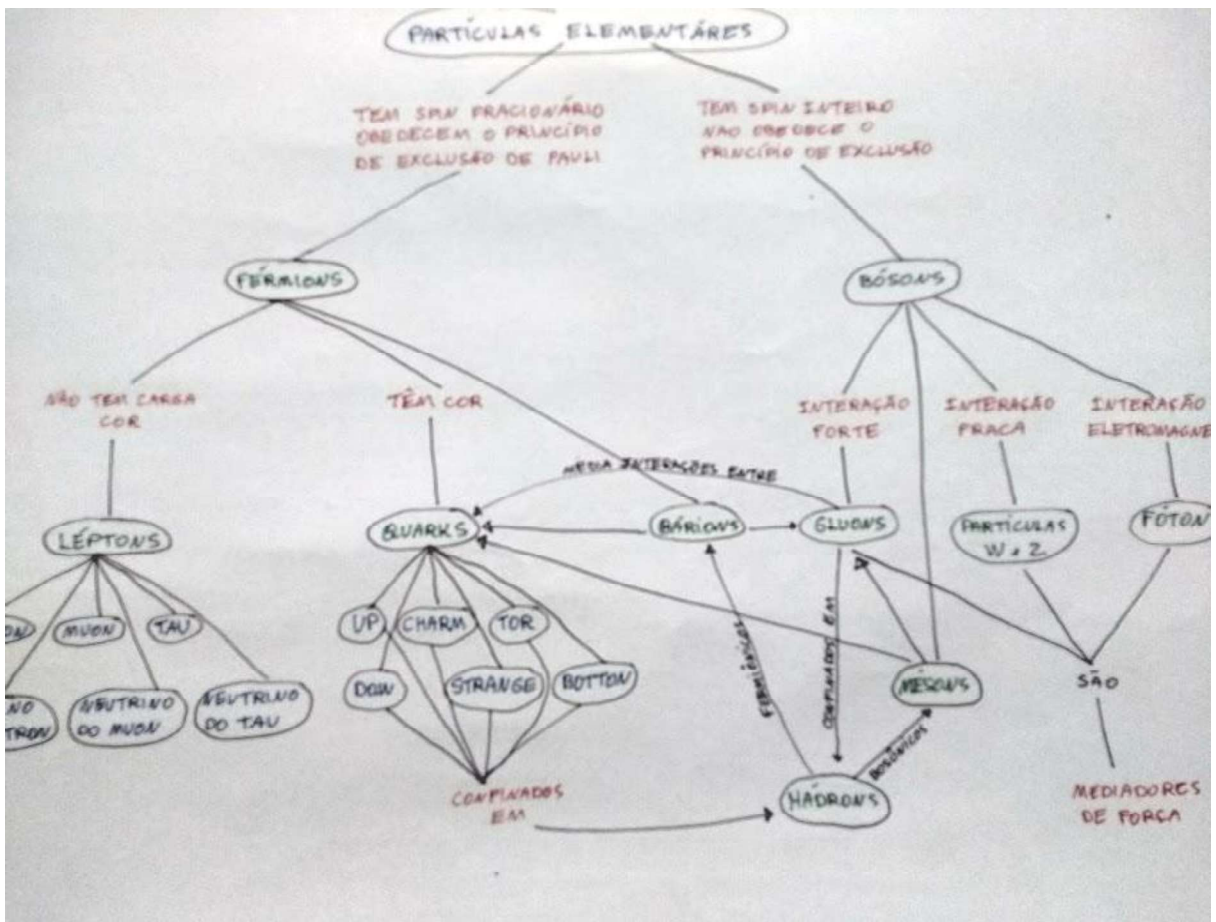 PARTÍCULAS ELEMENTÁRES
TEM SPIN FRACIONÁRIO
OBEDECEM O PRINCÍPIO
DE EXCLUSÃO DE PAULI
TEM SPIN INTEIRO
NÃO OBEDECE O
PRINCÍPIO DE EXCLUSÃO
FÉRMIONS
BÓSONS
NÃO TEM CARGA
COR
TÊM COR
INTERAÇÃO
FORTE
INTERAÇÃO
FRACA
INTERAÇÃO
ELETROMAGNE
MÉDIA INTERAÇÕES ENTRE
LÉPTONS
QUARKS
BÁRIONS
GLUONS
PARTÍCULAS
W e Z
FÓTON
ON
MUON
TAU
UP
CHARM
TOR
NO
TRON
NEUTRINO
DO MUON
NEUTRINO
DO TAU
DOW
STRANGE
BOTTON
FERMIÔNICOS
CONFINADOS EM
MÉSONS
SÃO
BOSÔNICOS
CONFINADOS
EM
HÁDRONS
MEDIADORES
DE FORÇA